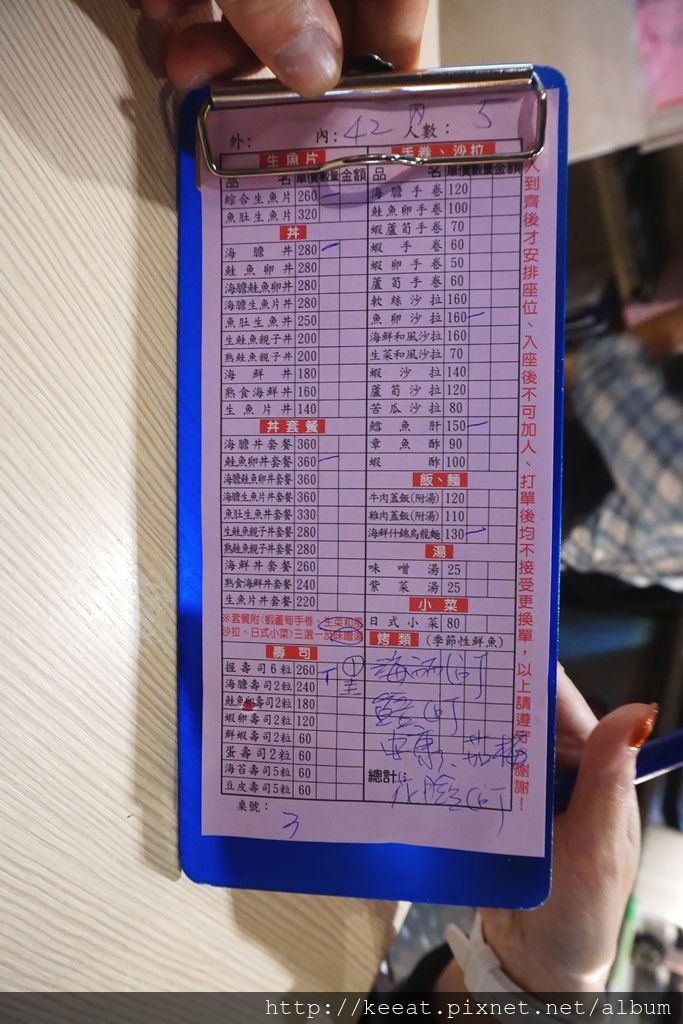 外： 內：42 內 人數：5
生魚片
品 名 單價 數量 金額
綜合生魚片 260
魚肚生魚片 320
丼
海膽丼 280
鮭魚卵丼 280
海膽鮭魚卵丼 280
海膽生魚片丼 280
魚肚生魚丼 250
生鮭魚親子丼 200
熟鮭魚親子丼 200
海鮮丼 180
熟食海鮮丼 160
生魚片丼 140
丼套餐
海膽丼套餐 360
鮭魚卵丼套餐 360
海膽鮭魚卵丼套餐 360
海膽生魚片丼套餐 360
魚肚生魚丼套餐 330
生鮭魚親子丼套餐 280
熟鮭魚親子丼套餐 280
海鮮丼套餐 260
熟食海鮮丼套餐 240
生魚片丼套餐 220
※套餐附(蝦蘆筍手卷、生菜和風
沙拉、日式小菜)三選一品味噌湯
壽司
握壽司6粒 260 ①
海膽壽司2粒 240
鮭魚卵壽司2粒 180
蝦卵壽司2粒 120
鮮蝦壽司2粒 60
蛋壽司2粒 60
海苔壽司5粒 60
豆皮壽司5粒 60
桌號：
3
手卷、沙拉
品 名 單價 數量 金額
海膽手卷 120
鮭魚卵手卷 100
蝦蘆筍手卷 70
蝦手卷 60
蝦卵手卷 50
蘆筍手卷 60
軟絲沙拉 160
魚卵沙拉 160
海鮮和風沙拉 160
生菜和風沙拉 70
蝦沙拉 140
蘆筍沙拉 120
苦瓜沙拉 80
鱈魚肝 150
章魚酢 90
蝦酢 100
飯、麵
牛肉蓋飯(附湯) 120
雞肉蓋飯(附湯) 110
海鮮什錦烏龍麵 130
湯
味噌湯 25
紫菜湯 25
小菜
日式小菜 80
烤類 (季節性鮮魚)
總計：
人到齊後才安排座位、入座後不可加人、打單後均不接受更換單，以上請遵守，謝謝！
http://keeat.pixnet.net/album